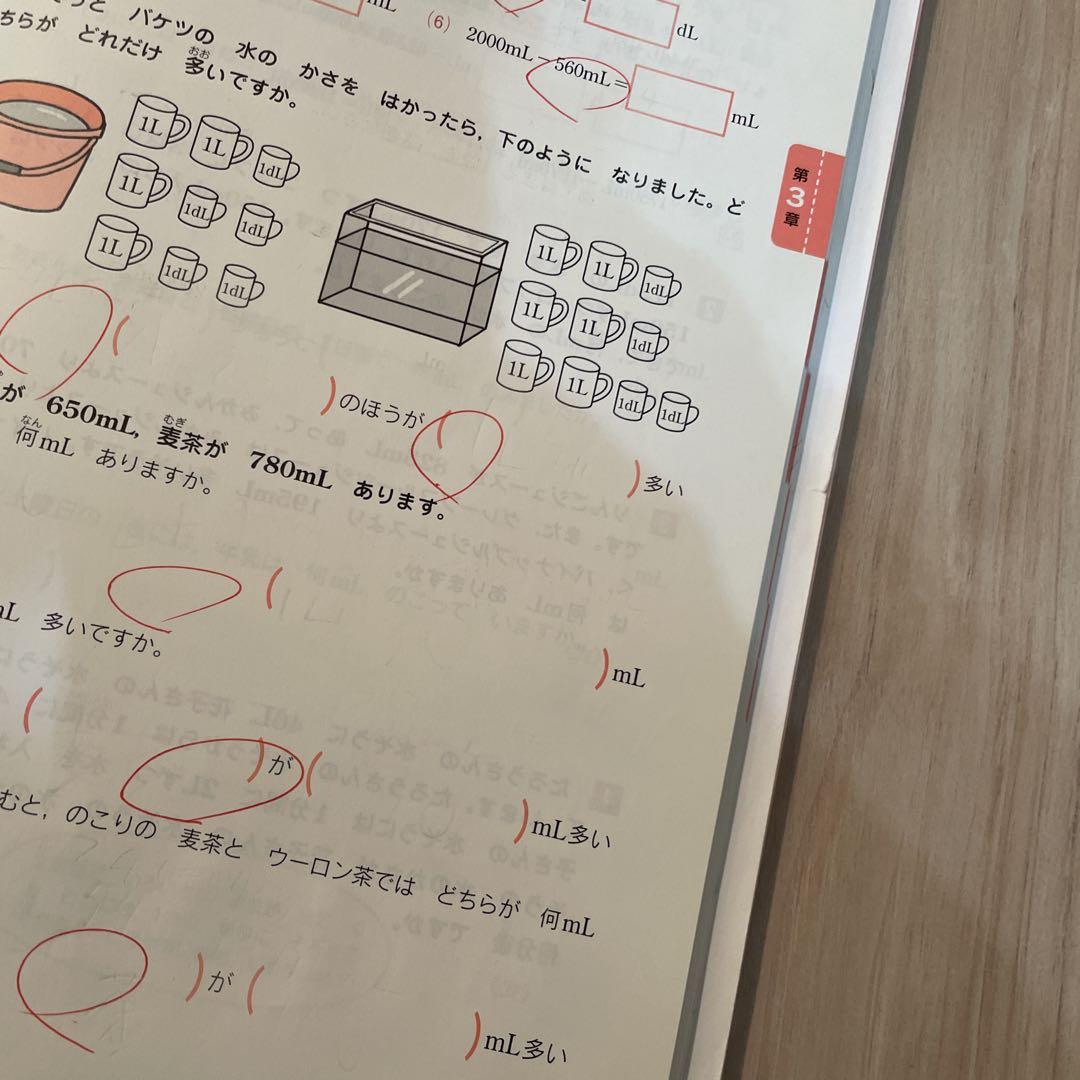 mL
dL
(6) 2000mL－560mL＝
mL
バケツの 水の かさを はかったら，下のように なりました。ど
ちらが どれだけ 多いですか。
おお
第3章
1L 1L 1dL
1L 1dL 1dL
1L 1dL 1dL
1L 1L 1dL
1L 1L 1dL
1L 1L 1dL 1dL
( )のほうが( )多い
が 650mL，麦茶が 780mL あります。
むぎ
何mL ありますか。
なん
( )mL
mL 多いですか。
( )が( )mL多い
むと，のこりの 麦茶と ウーロン茶では どちらが 何mL
)が( )mL多い